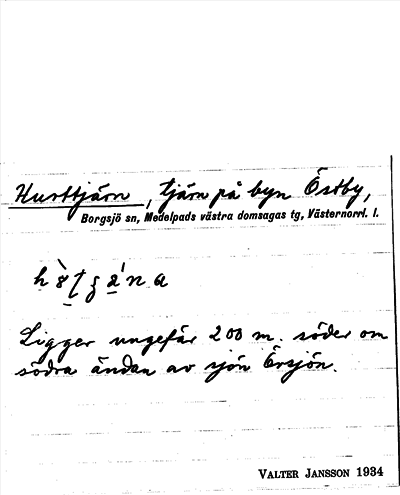 Hurttjärn, tjärn på byn Östby,
Borgsjö sn, Medelpads västra domsagas tg, Västernorrl. l.
Ligger ungefär 200 m. söder om
södra ändan av sjön Örsjön.
VALTER JANSSON 1934